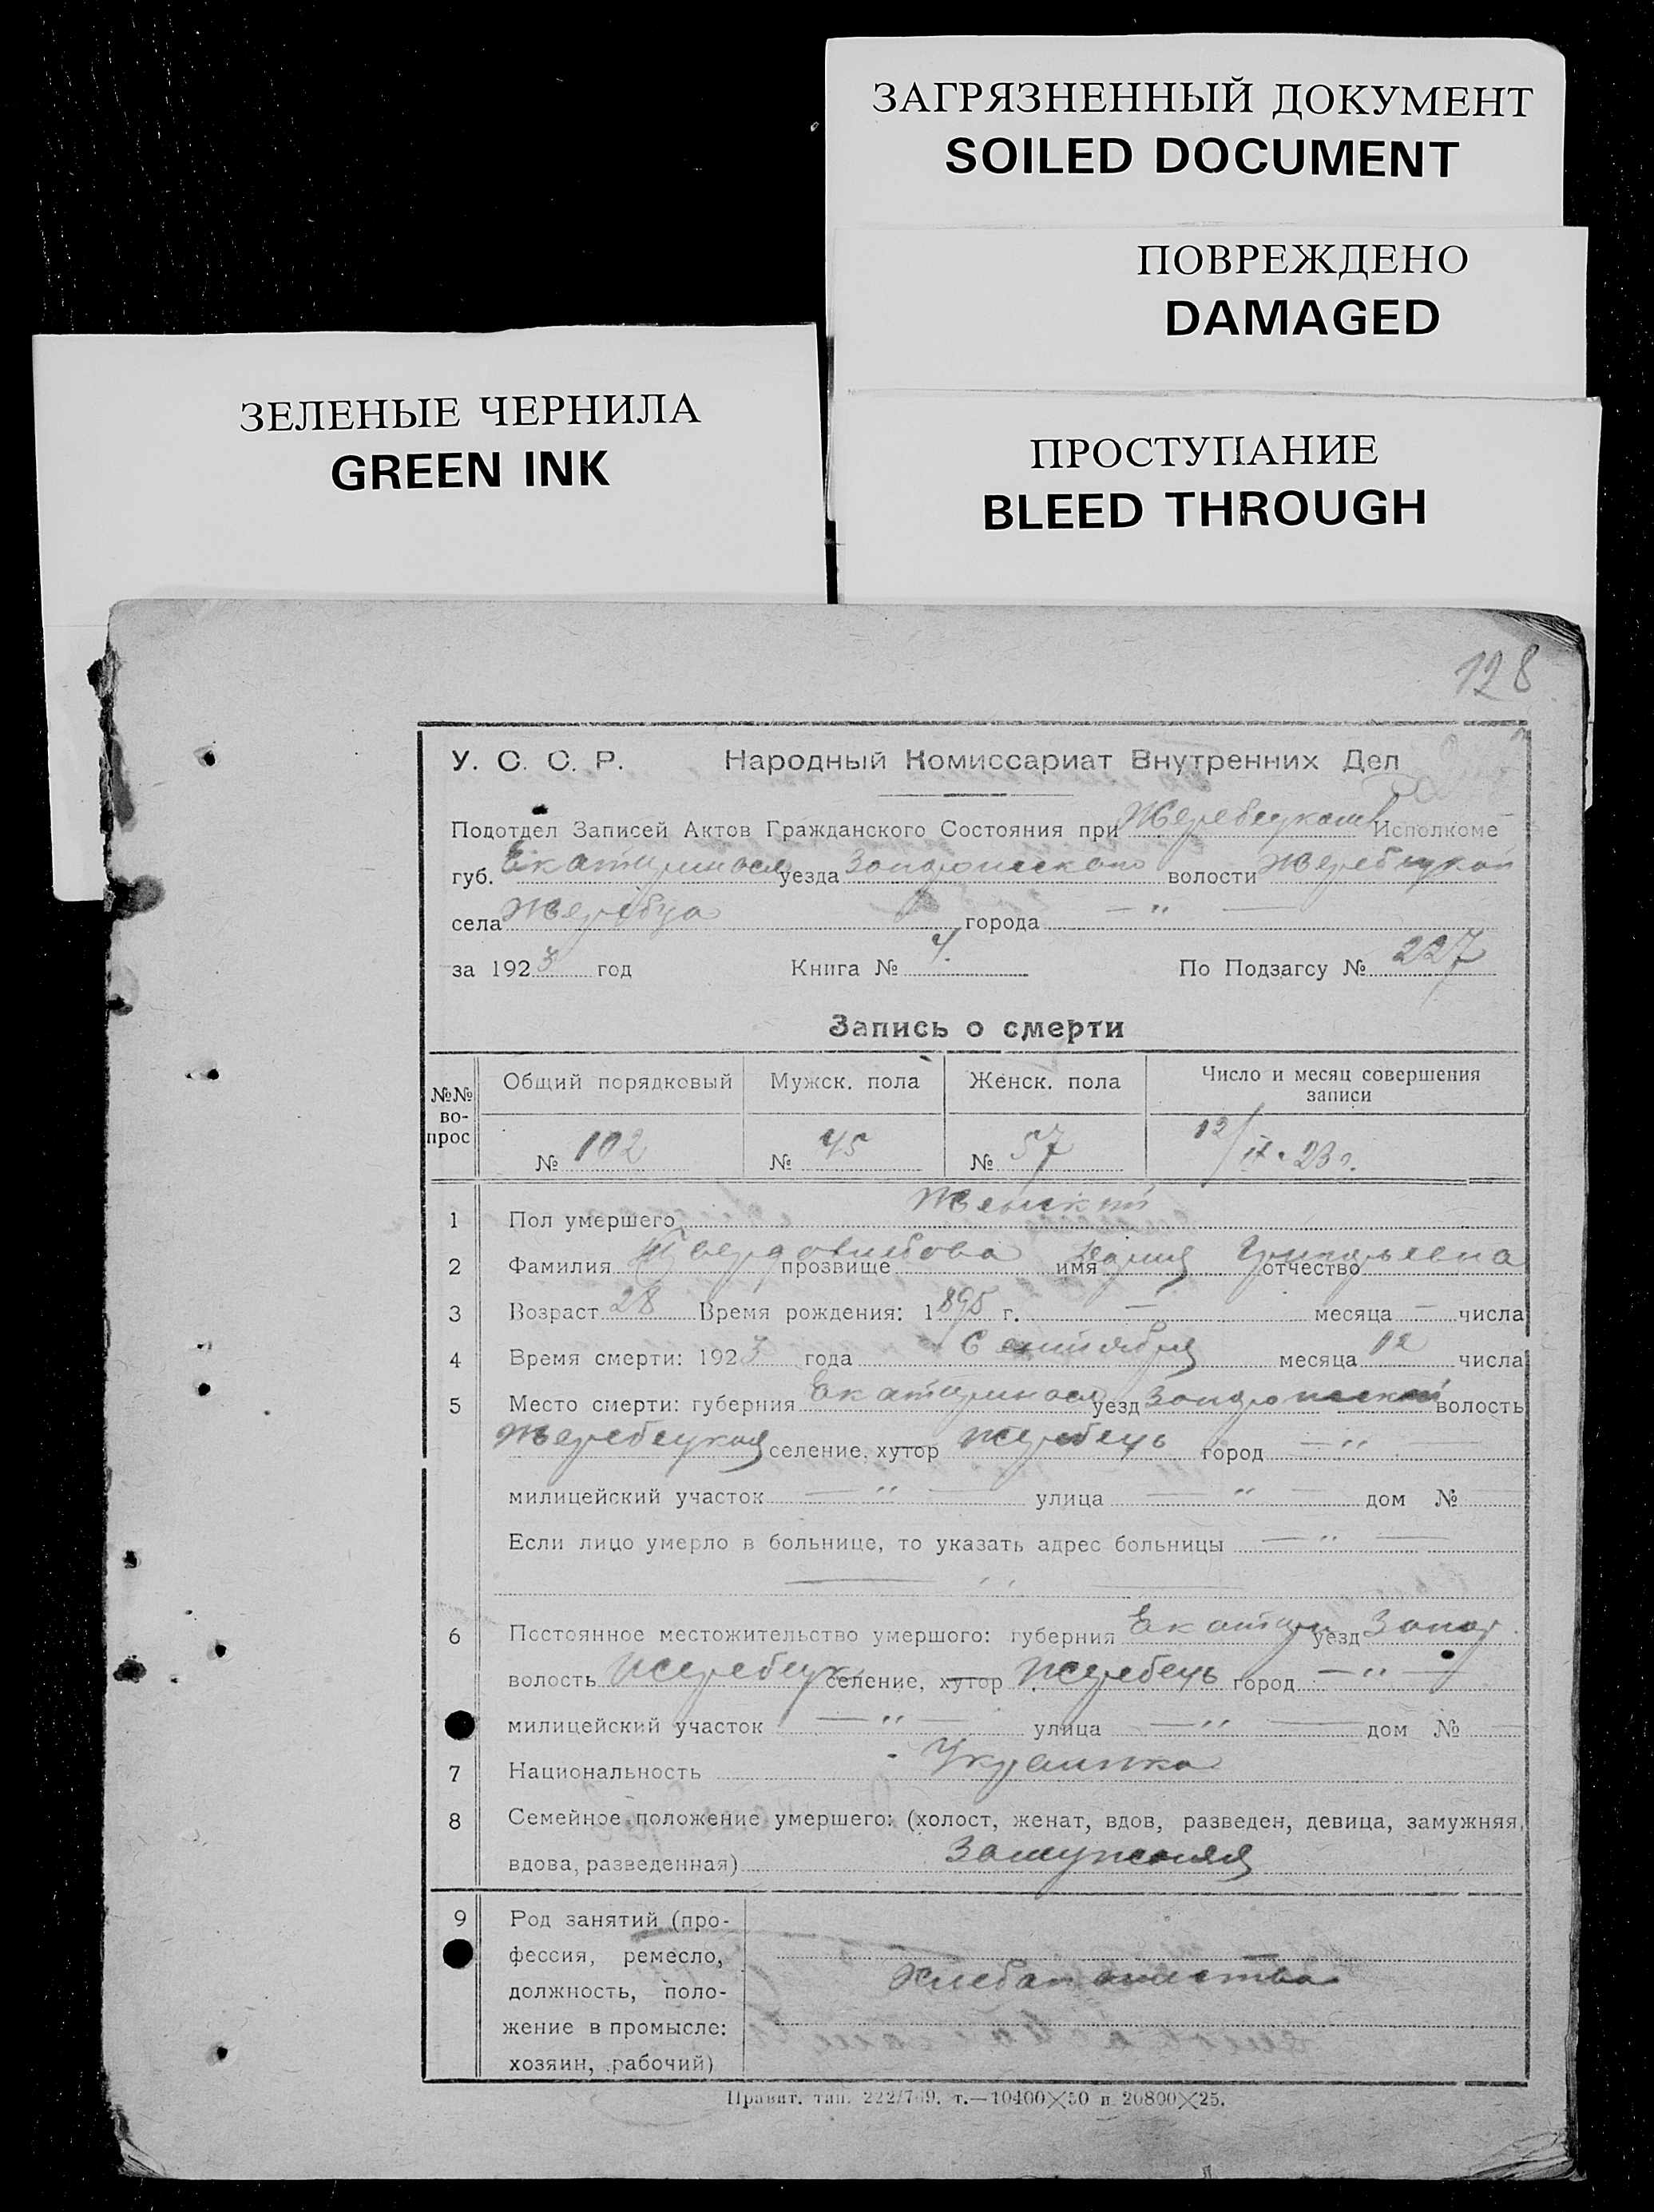 ЗАГРЯЗНЕННЫЙ ДОКУМЕНТ
SOILED DOCUMENT
ПОВРЕЖДЕНО
DAMAGED
ЗЕЛЕНЫЕ ЧЕРНИЛА
GREEN INK
ПРОСТУПАНИЕ
BLEED THROUGH
128
У. С. С. Р. Народный Комиссариат Внутренних Дел
Подотдел Записей Актов Гражданского Состояния при Жеребецком Исполкоме
губ. Екатериносл уезда Запорожского волости Жеребецкой
села Жеребца города — " —
за 1923 год Книга № 4. По Подзагсу № 227
Запись о смерти
№№ вопрос Общий порядковый Мужск. пола Женск. пола Число и месяц совершения записи
№ 102 № 45 № 57 12/IX - 23 г.
1 Пол умершего Женский
2 Фамилия Твердохлебова прозвище имя отчество Григорьевна
3 Возраст 28 Время рождения: 1895 г. — месяца — числа
4 Время смерти: 1923 года Сентября месяца 12 числа
5 Место смерти: губерния Екатериносл уезд Запорожский волость
Жеребецкая селение, хутор Жеребець город — " —
милицейский участок — " — улица — " — дом № —
Если лицо умерло в больнице, то указать адрес больницы — " —
— " —
6 Постоянное местожительство умершого: губерния Екатер уезд Запор.
волость Жеребецк селение, хутор Жеребець город — " —
милицейский участок — " — улица — " — дом № —
7 Национальность Украинка
8 Семейное положение умершего: (холост, женат, вдов, разведен, девица, замужняя,
вдова, разведенная) Замужняя
9 Род занятий (про-
фессия, ремесло,
Хлебопашество
должность, поло-
жение в промысле:
хозяин, рабочий)
Правит. тип. 222/769. т.—10400×50 и 20800×25.